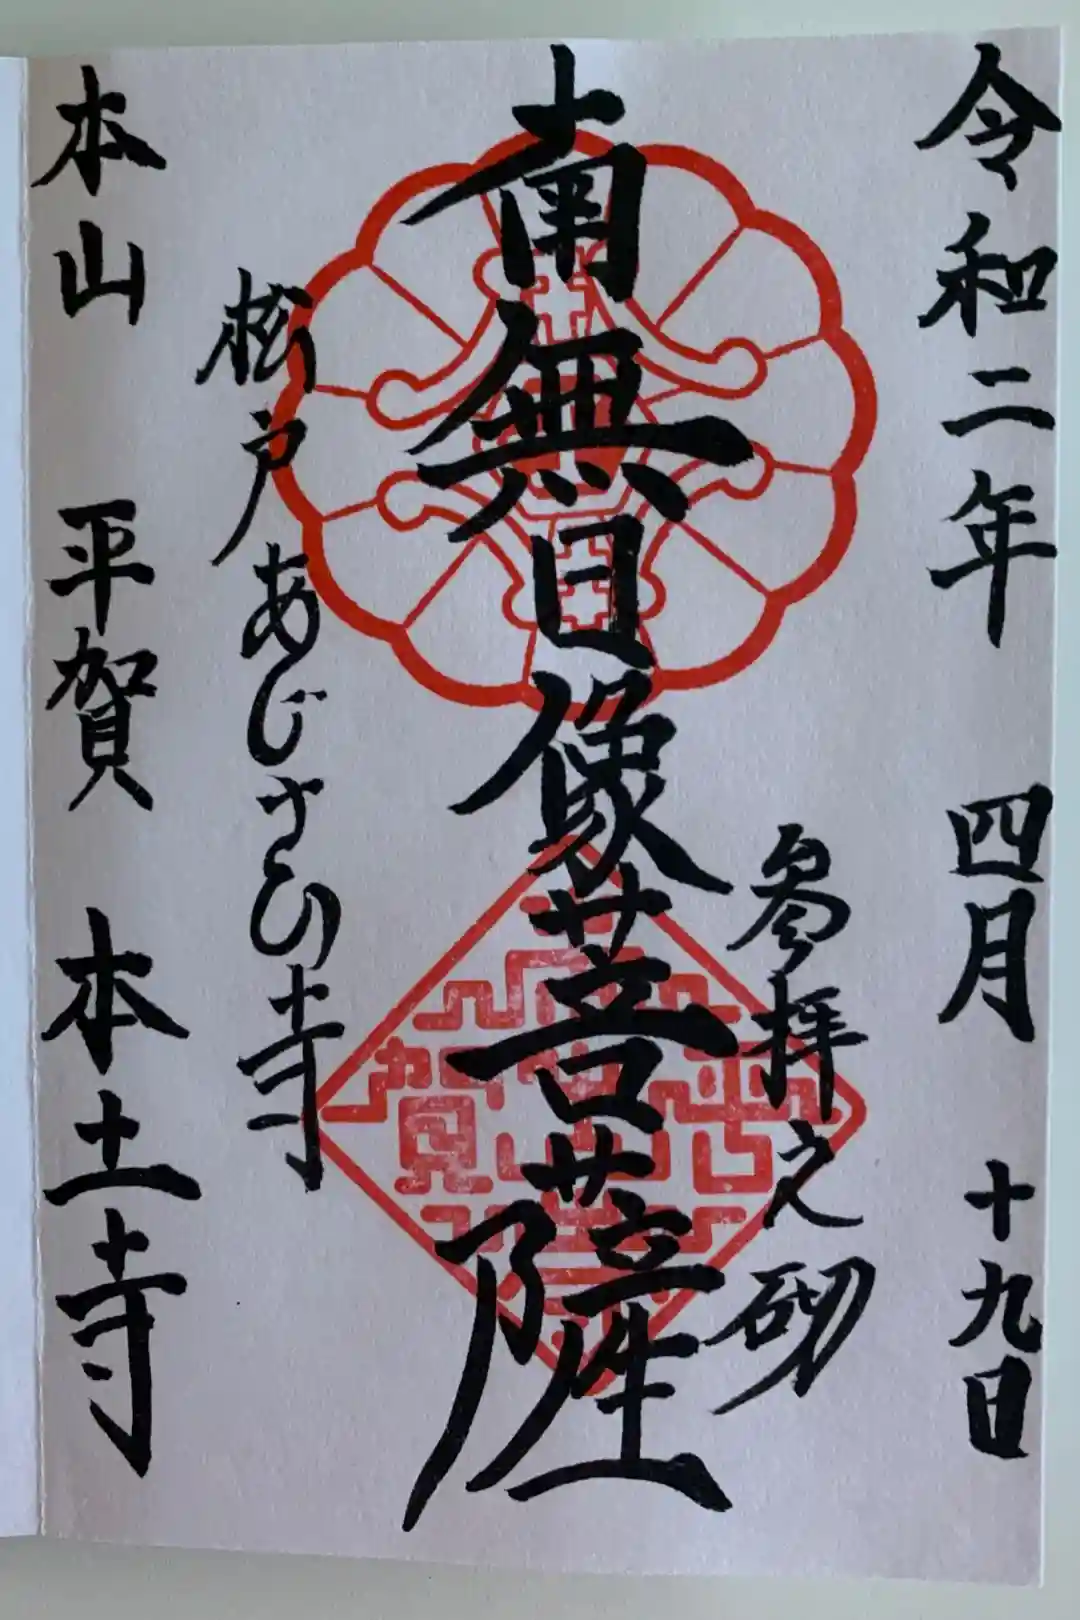 令和二年 四月 十九日
参拝之砌
南無日像菩薩
松戸あじさひ寺
本山 平賀 本土寺